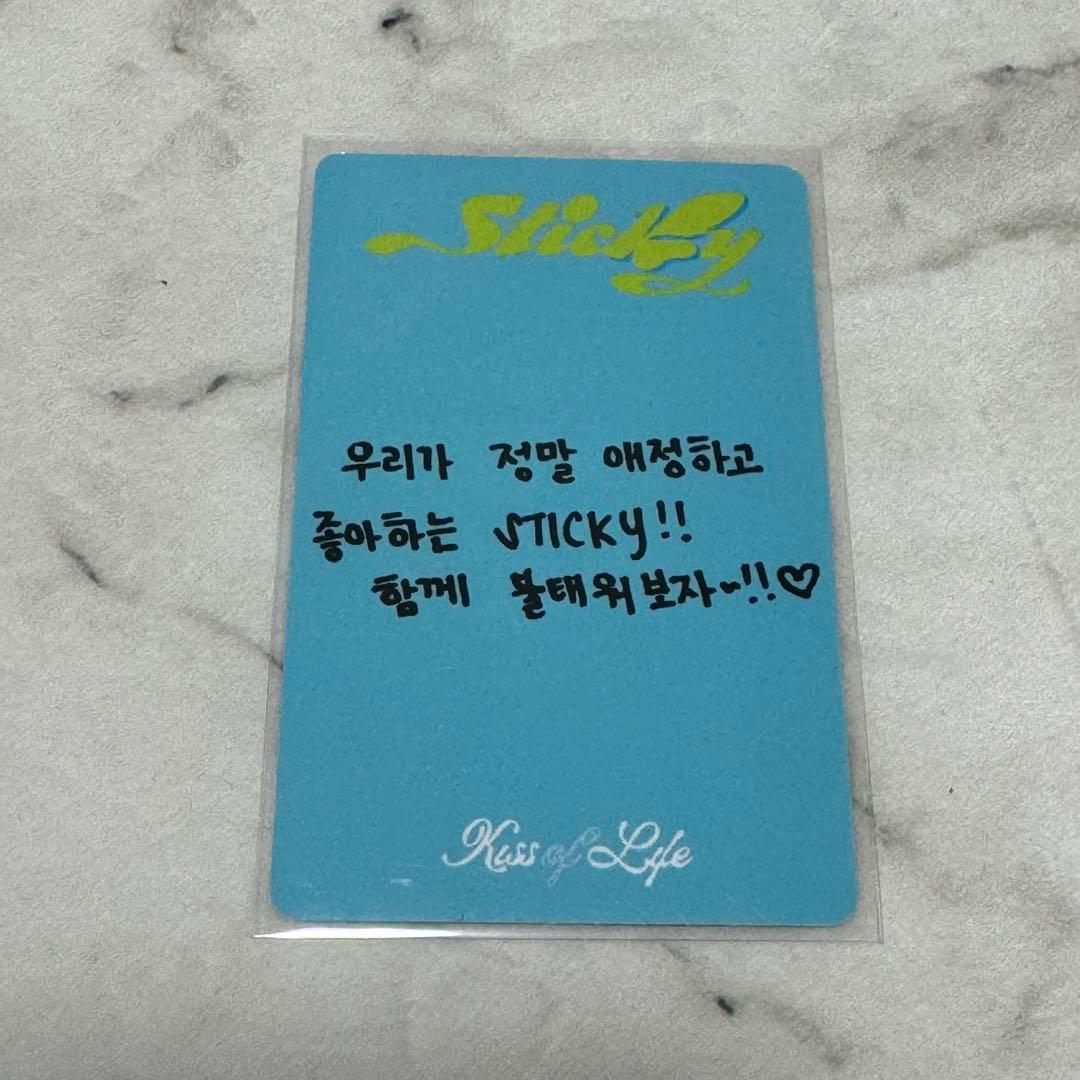 Sticky
우리가 정말 애정하고
좋아하는 STICKY!!
함께 불태워보자~!!♡
Kiss of Life